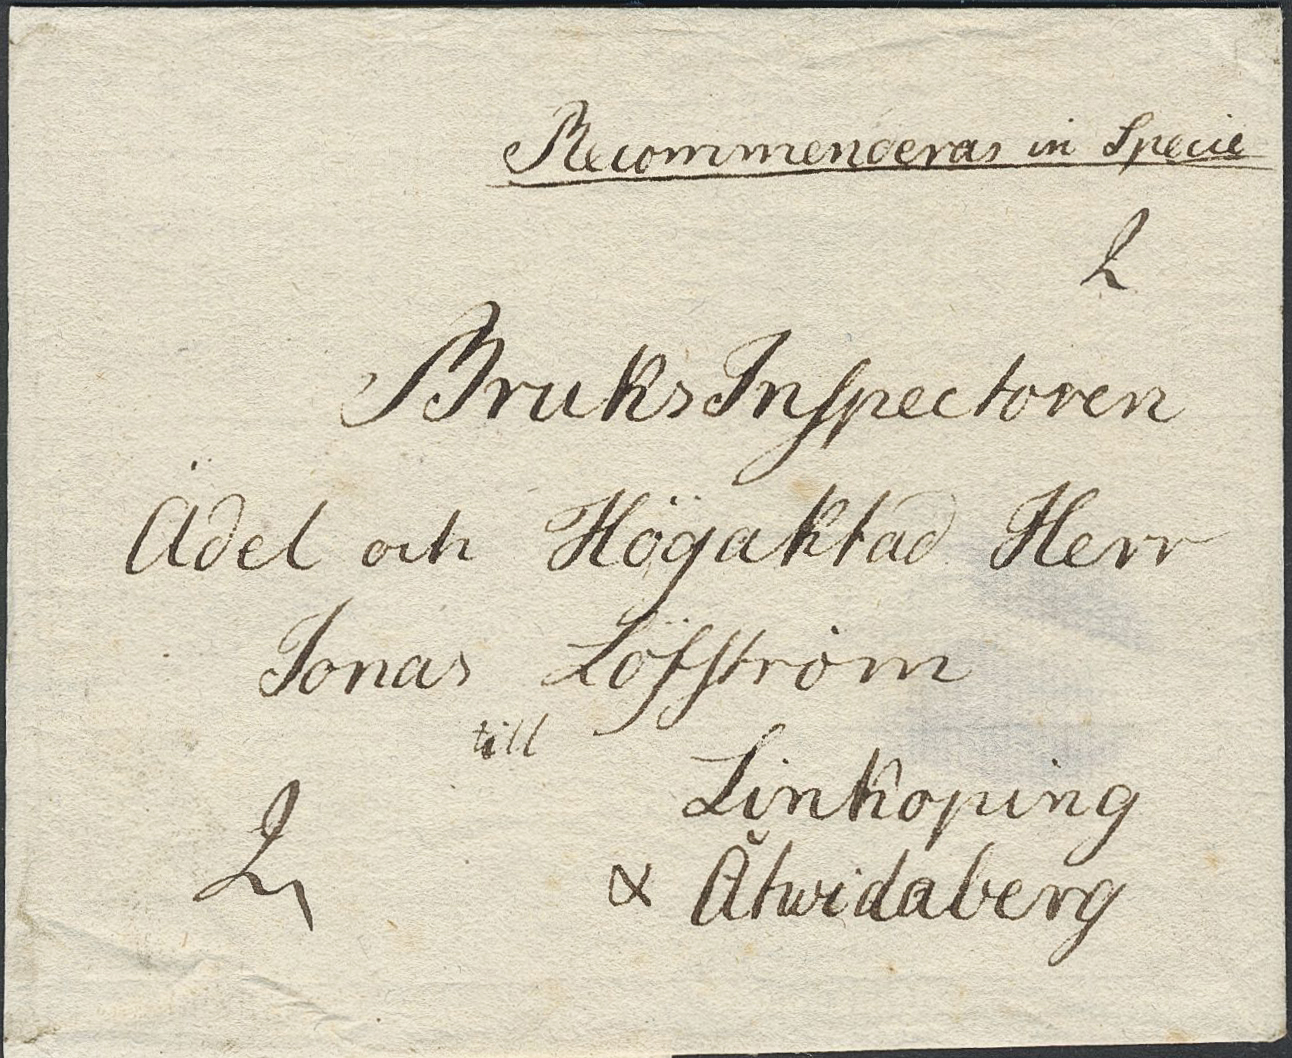 Recommenderas in Specie
BruksInspectoren
Ädel och Högaktad Herr
Jonas Löfström
till
Linköping
& Åtwidaberg